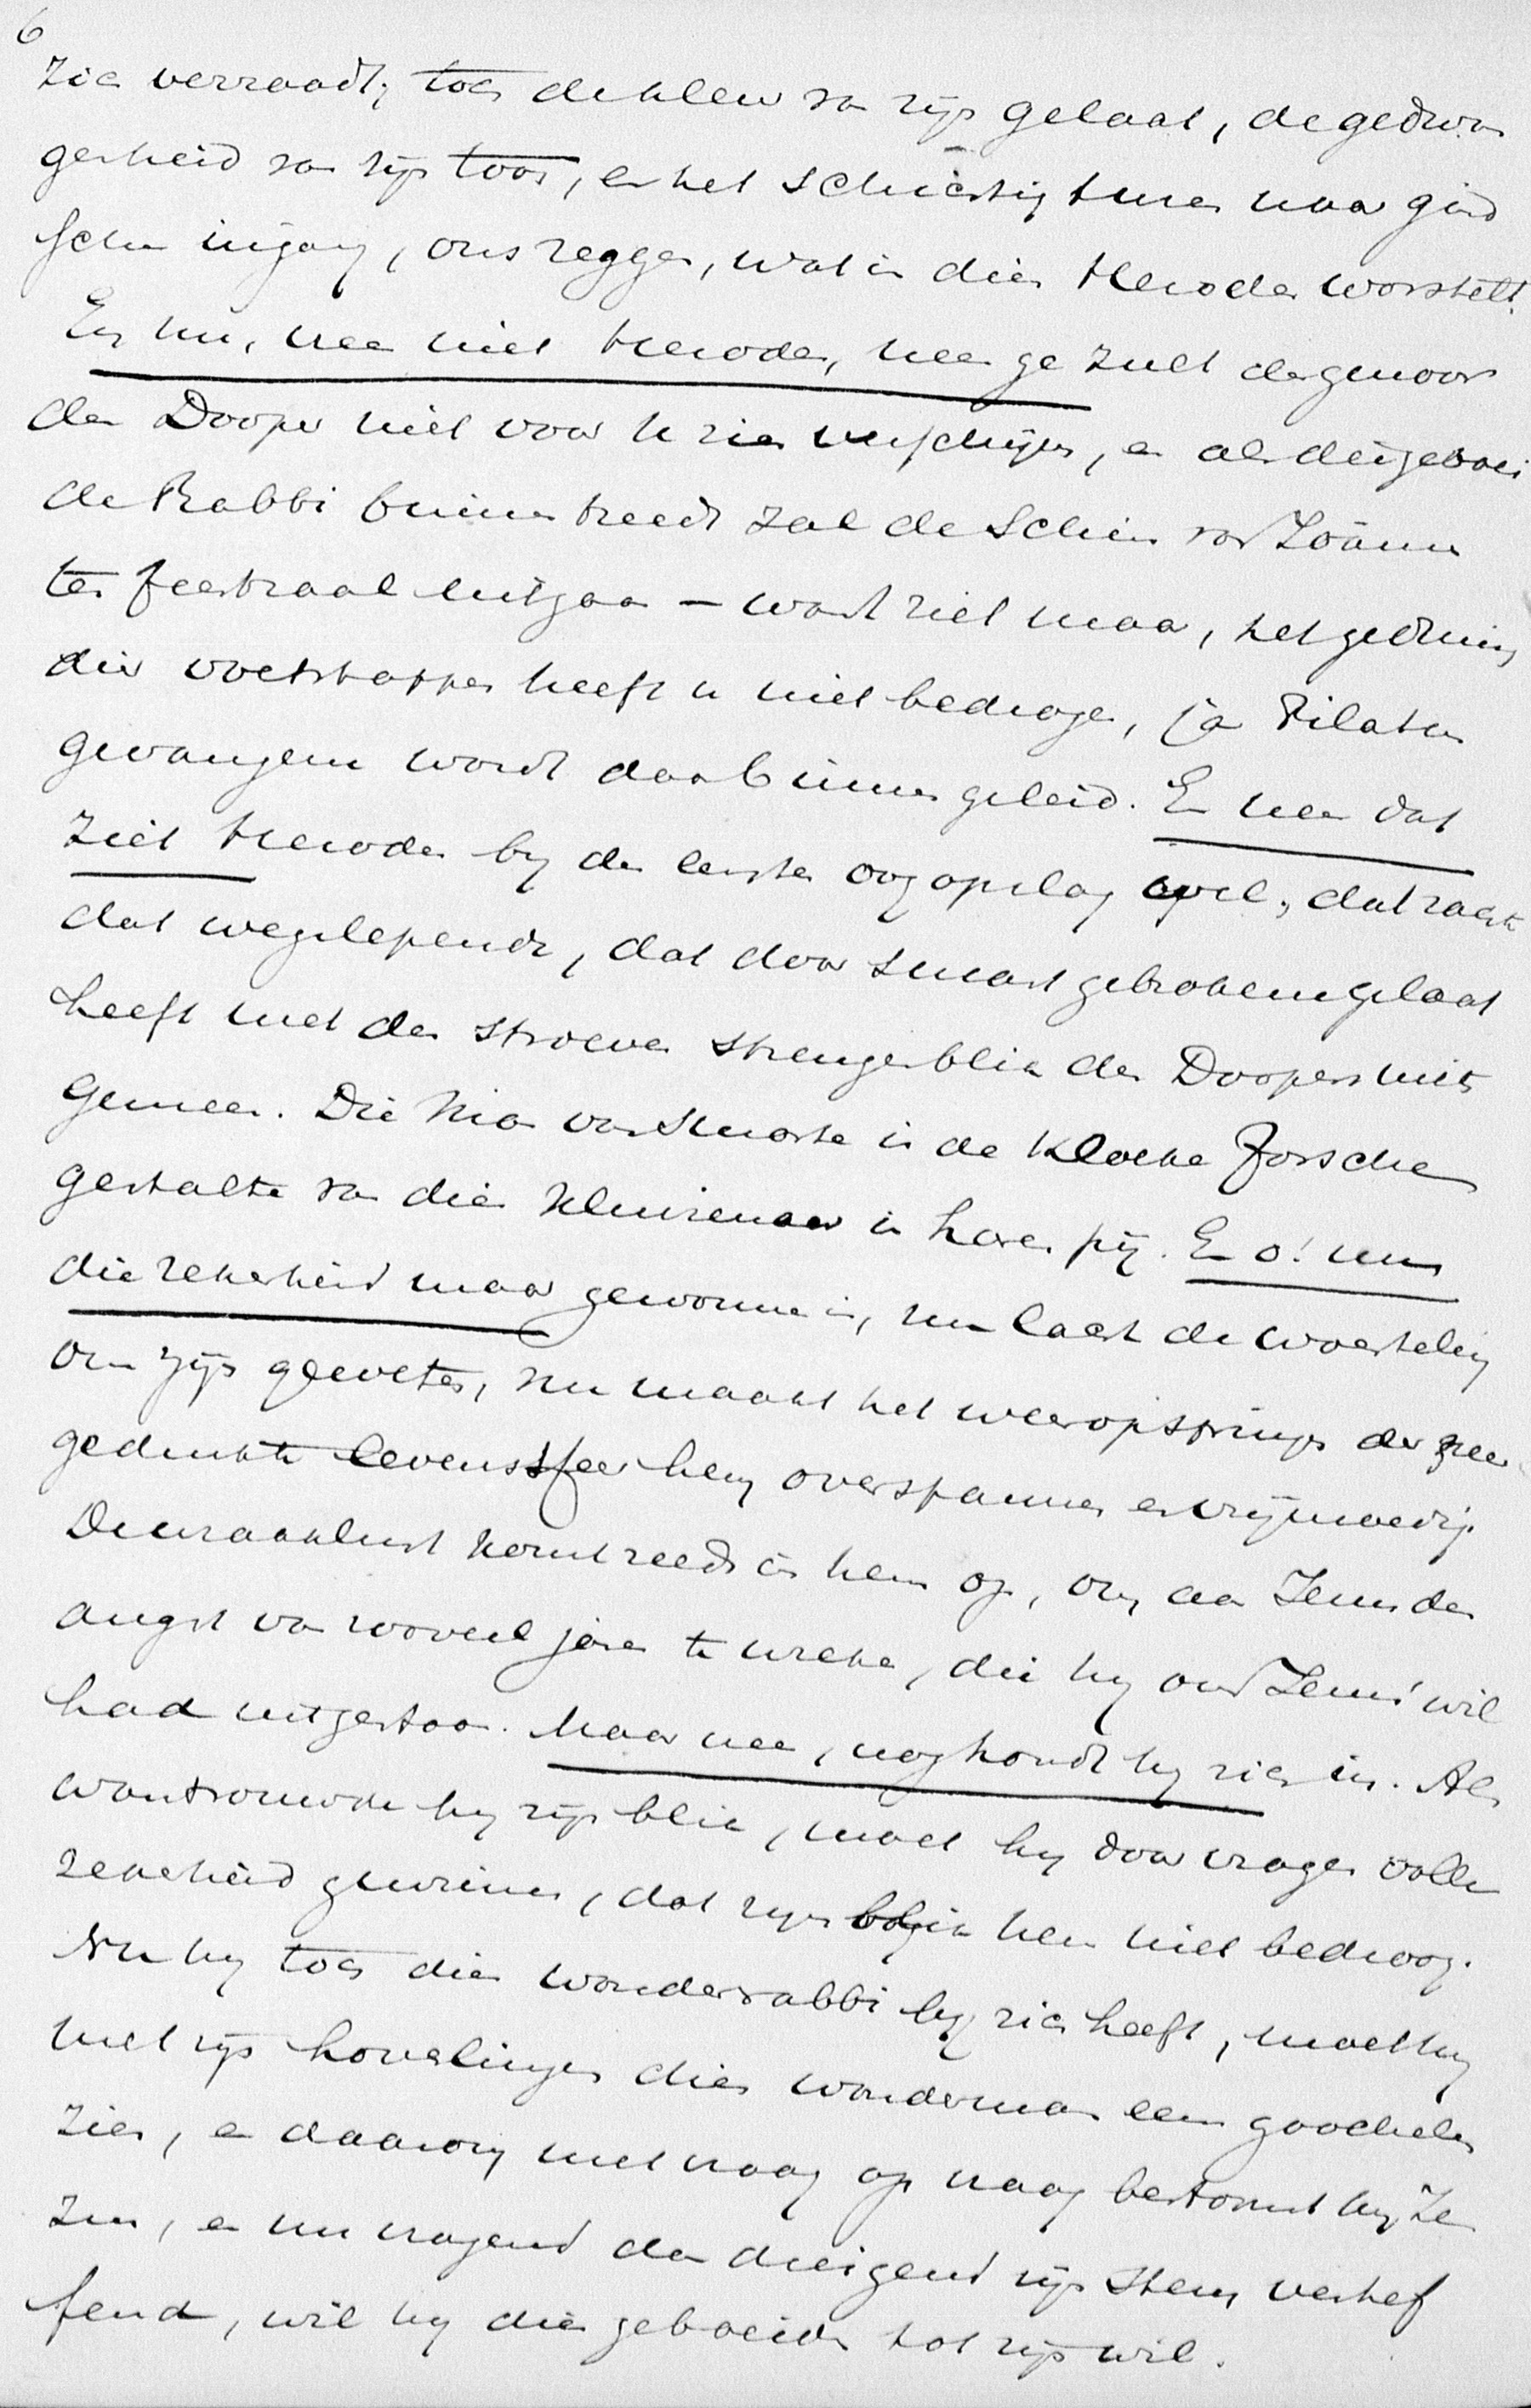 6
zich verraadt, toch de kleur van zijn gelaat, de gedwon
genheid van zijn toon, en het schichtig turen naar gind
schen ingang, ons zeggen, wat in dien Herodes worstelt.
En nu, nee niet Herodes, neen ge zult den gemoor
den Dooper niet voor u zien verschijnen, en als de
de Rabbi binnen treedt zal de schim van Joannes
ter feestzaal uitgaan — want ziet maar, het gedruisch
dier voetstappen heeft u niet bedrogen, ja Pilatus
gevangene wordt daar binnen geleid. En neen dat
ziet Herodes bij den eersten oogopslag wel, dat zachte
dat wegslepende, dat door smart gebroken gelaat
heeft met den stroeven strengen blik des Doopers niets
gemeen. Die Man van Smarte is de kloeke forsche
gestalte van dien kluizenaar in haren pij. En o! nu
die zekerheid maar gewonnen is, nu lacht de worsteling
om zijn geweten, nu maakt het weeropspringen der neer
gedrukte levenssfeer hem overspannen en vrijmoedig.
De wraaklust komt reeds in hem op, om aan Jezus den
angst van zooveel jaren te wreken, die hij om Jezus' wil
had uitgestaan. Maar nee, nog houdt hij zich in. Als
wantrouwde hij zijn blik, moet hij door vragen volle
zekerheid gewinnen, dat zijn blik hem niet bedroog.
Nu hij toch dien wonderrabbi bij zich heeft, moet hij
met zijn hovelingen dien wonderman eens goochelen
zien, en daarom met vraag op vraag bestormt hij Je
zus, en nu vragend dan dreigend zijn stem verhef
fend, wil hij dien geboeide tot zijn wil.